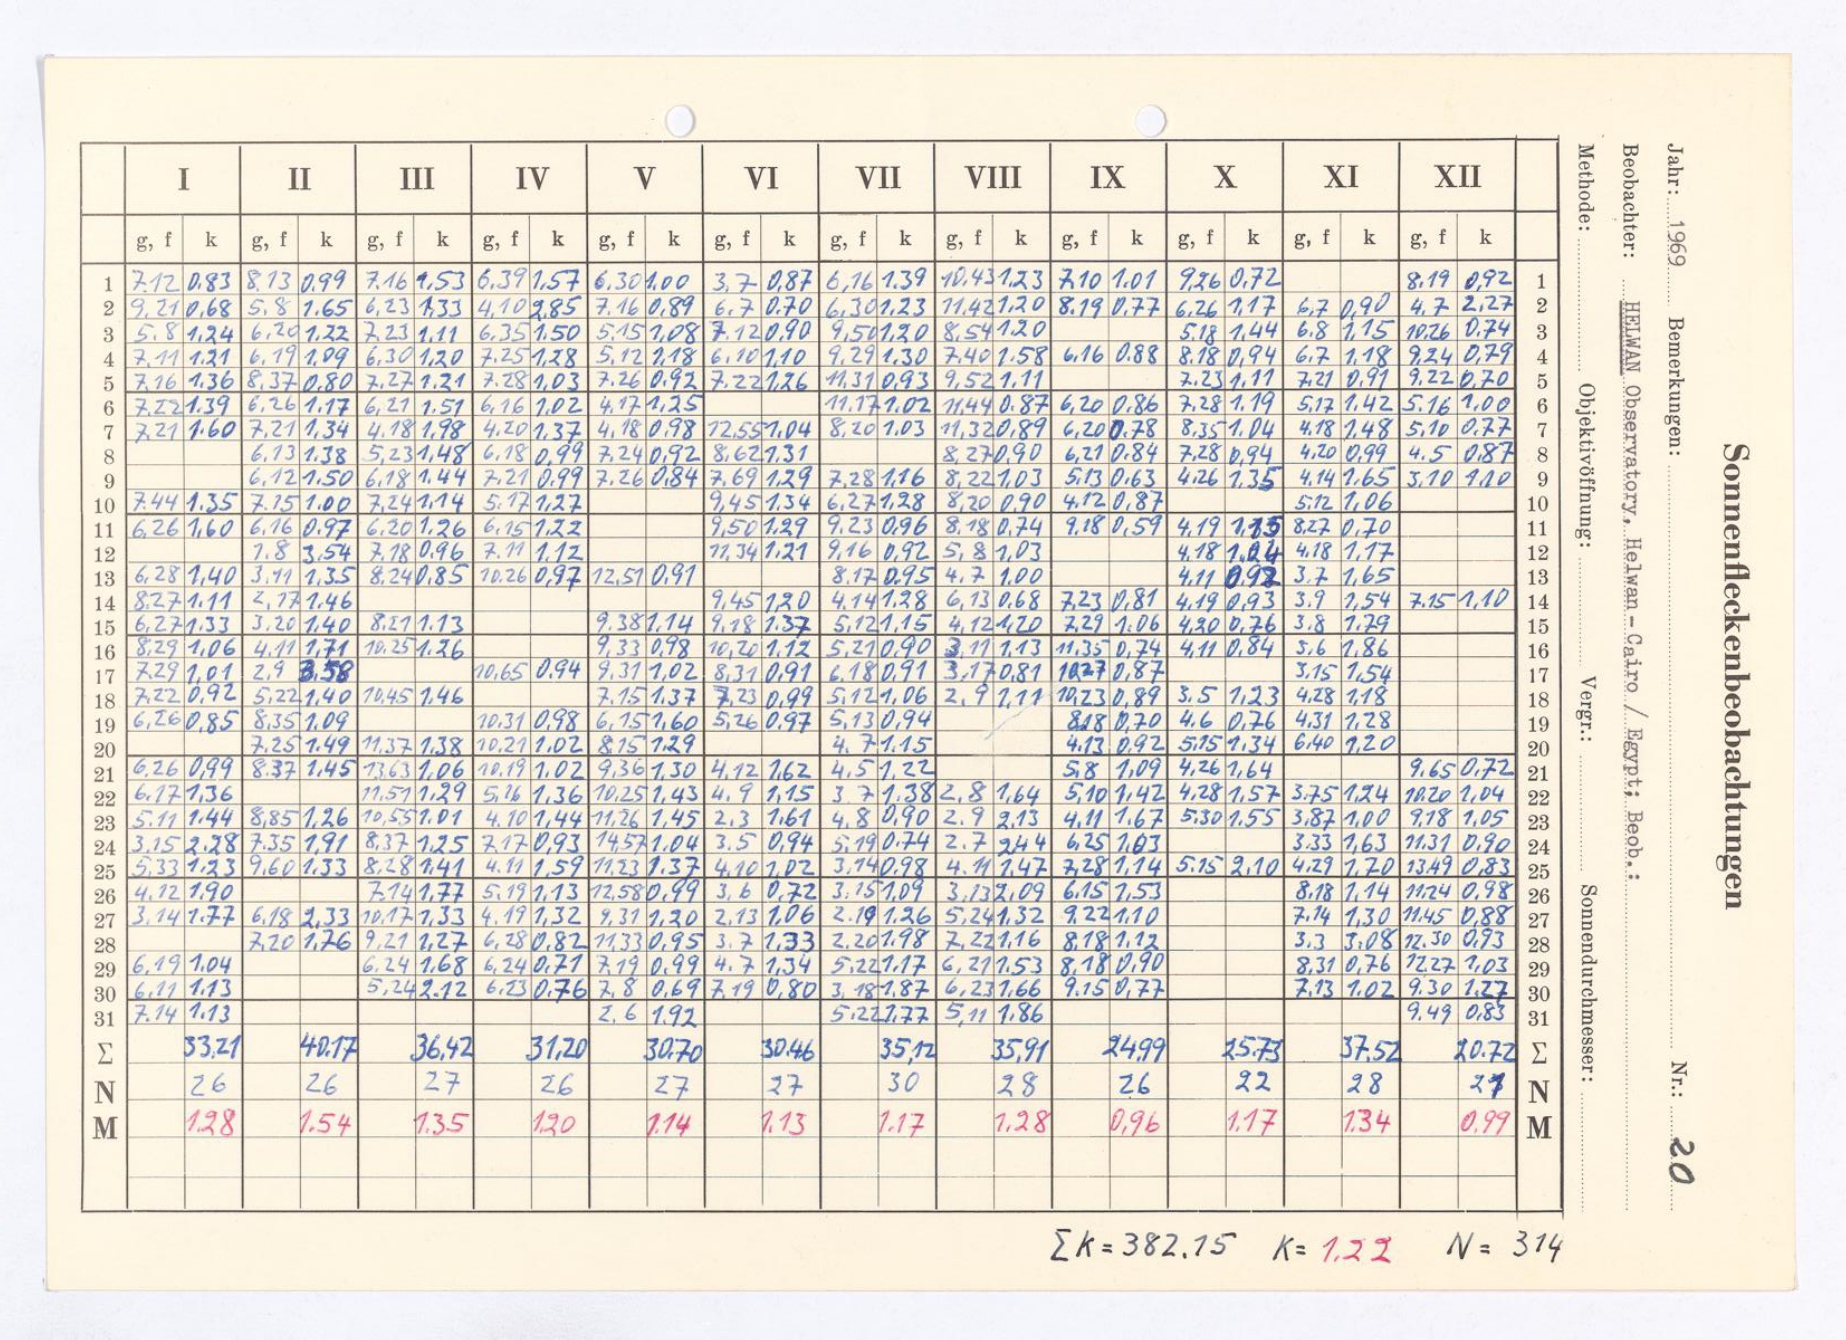 I II III IV V VI VII VIII IX X XI XII
g, f k g, f k g, f k g, f k g, f k g, f k g, f k g, f k g, f k g, f k g, f k g, f k
1 7.12 0.83 8.13 0.99 7.16 1.53 6.39 1.57 6.30 1.00 3,7 0,87 6,16 1.39 10.43 1.23 7.10 1.01 9,26 0,72 8.19 0,92 1
2 9,21 0,68 5,8 1.65 6,23 1,33 4,10 2,85 7.16 0,89 6,7 0.70 6,30 1.23 11,42 1,20 8.19 0,77 6,26 1,17 6,7 0,90 4,7 2,27 2
3 5.8 1,24 6,20 1.22 7,23 1.11 6,35 1.50 5,15 1,08 7.12 0,90 9,50 1.20 8,54 1.20 5,18 1,44 6.8 1,15 10,26 0.74 3
4 7.11 1.21 6,19 1.09 6,30 1,20 7.25 1,28 5,12 1,18 6,10 1,10 9,29 1.30 7.40 1.58 6,16 0.88 8.18 0,94 6,7 1,18 9,24 0,79 4
5 7,16 1.36 8,37 0,80 7.27 1.21 7.28 1,03 7.26 0.92 7.22 1,26 11,31 0,93 9,52 1.11 7.23 1,11 7.21 0,91 9.22 0,70 5
6 7,22 1.39 6,26 1.17 6,21 1.51 6,16 1.02 4.17 1,25 11.17 1.02 11,44 0.87 6,20 0,86 7.28 1.19 5.17 1.42 5.16 1,00 6
7 7,21 1.60 7,21 1,34 4.18 1,98 4.20 1.37 4,18 0,98 12,55 1,04 8,20 1.03 11,32 0,89 6,20 0,78 8,35 1.04 4.18 1,48 5,10 0,77 7
8 6,13 1.38 5,23 1,48 6,18 0,99 7,24 0,92 8,62 1.31 8,27 0,90 6,21 0,84 7,28 0,94 4,20 0,99 4.5 0,87 8
9 6,12 1,50 6,18 1.44 7,21 0,99 7.26 0,84 7,69 1.29 7,28 1,16 8,22 1,03 5,13 0,63 4.26 1.35 4.14 1.65 3,10 1.10 9
10 7.44 1,35 7.15 1.00 7,24 1.14 5.17 1,27 9,45 1.34 6,27 1,28 8,20 0,90 4.12 0,87 5.12 1,06 10
11 6,26 1,60 6,16 0.97 6,20 1.26 6,15 1.22 9,50 1.29 9,23 0,96 8.18 0,74 9.18 0,59 4,19 8,27 0,70 11
12 1.8 3,54 7.18 0.96 7.11 1.12 11.34 1.21 9,16 0,92 5,8 1,03 4.18 4.18 1,17 12
13 6,28 1,40 3,11 1,35 8.24 0,85 10.26 0,97 12,51 0,91 8.17 0.95 4.7 1.00 4.11 0,92 3.7 1,65 13
14 8.27 1.11 2,17 1.46 9,45 1,20 4.14 1.28 6,13 0.68 7,23 0,81 4.19 0,93 3.9 1,54 7.15 1,10 14
15 6,27 1.33 3.20 1,40 8.21 1.13 9.38 1.14 9,18 1.37 5,12 1.15 4,12 1,20 7.29 1.06 4,20 0,76 3.8 1,79 15
16 8,29 1,06 4,11 1,71 10,25 1.26 9,33 0,98 10,20 1.12 5,21 0,90 3,11 1,13 11,35 0,74 4,11 0,84 3,6 1,86 16
17 7.29 1,01 2,9 3,58 10,65 0.94 9.31 1,02 8,31 0,91 6,18 0,91 3,17 0,81 10.27 0,87 3.15 1,54 17
18 7,22 0,92 5,22 1,40 10,45 1,46 7.15 1.37 7,23 0,99 5,12 1,06 2,9 1,11 10,23 0,89 3.5 1,23 4.28 1,18 18
19 6,26 0,85 8,35 1.09 10.31 0,98 6,15 1,60 5,26 0.97 5,13 0,94 8.18 0,70 4.6 0,76 4.31 1.28 19
20 7,25 1.49 11.37 1,38 10,21 1.02 8.15 1.29 4.7 1.15 4.13 0,92 5.15 1,34 6.40 1,20 20
21 6,26 0,99 8.37 1,45 13,63 1,06 10.19 1.02 9,36 1.30 4,12 1,62 4.5 1,22 5,8 1,09 4.26 1,64 9.65 0,72 21
22 6.17 1,36 11,51 1,29 5,16 1,36 10.25 1,43 4.9 1,15 3.7 1,38 2,8 1,64 5,10 1,42 4.28 1,57 3.75 1,24 10.20 1,04 22
23 5.11 1.44 8,85 1,26 10,55 1.01 4.10 1,44 11,26 1.45 2.3 1,61 4.8 0,90 2.9 2.13 4.11 1.67 5.30 1.55 3,87 1,00 9.18 1.05 23
24 3,15 2.28 7.35 1,91 8,37 1,25 7.17 0,93 14,57 1.04 3.5 0,94 5,19 0.74 2.7 2,44 6,25 1,03 3.33 1,63 11.31 0,90 24
25 5,33 1.23 9,60 1.33 8.28 1,41 4.11 1,59 11.23 1.37 4.10 1,02 3,14 0.98 4.11 1,47 7,28 1,14 5.15 2,10 4.29 1,70 13.49 0,83 25
26 4,12 1,90 7.14 1.77 5.19 1,13 12,58 0,99 3,6 0,72 3,15 1,09 3,13 2,09 6.15 1,53 8,18 1,14 11.24 0,98 26
27 3,14 1.77 6,18 2,33 10,17 1,33 4.19 1,32 9,31 1,20 2,13 1,06 2.19 1.26 5,24 1,32 9.22 1,10 7.14 1,30 11.45 0,88 27
28 7,20 1,76 9,21 1,27 6,28 0,82 11,33 0,95 3.7 1,33 2.20 1,98 7,22 1,16 8,18 1,12 3.3 3,08 12.30 0,93 28
29 6,19 1,04 6,24 1,68 6,24 0,71 7,19 0,99 4.7 1,34 5,22 1.17 6,21 1.53 8,18 0,90 8,31 0,76 12.27 1,03 29
30 6,11 1.13 5,24 2.12 6,23 0,76 7,8 0,69 7,19 0,80 3,18 1.87 6,23 1,66 9.15 0,77 7.13 1.02 9.30 1.27 30
31 7.14 1.13 2,6 1.92 5,22 1,77 5,11 1.86 9.49 0,83 31
Σ 33,21 40.17 36,42 31,20 30.70 30.46 35,12 35,91 24,99 25.73 37.52 20.72 Σ
N 26 26 27 26 27 27 30 28 26 22 28 N
M 1.28 1.54 1.35 1.20 1.14 1.13 1.17 1,28 0,96 1.17 1.34 0.99 M
ΣK = 382.15 K = 1,22 N = 314
Sonnenfleckenbeobachtungen
Jahr: 1969 Bemerkungen: Nr.: 20
Beobachter: HELWAN Observatory, Helwan-Cairo / Egypt; Beob.:
Methode: Objektivöffnung: Vergr.: Sonnendurchmesser: